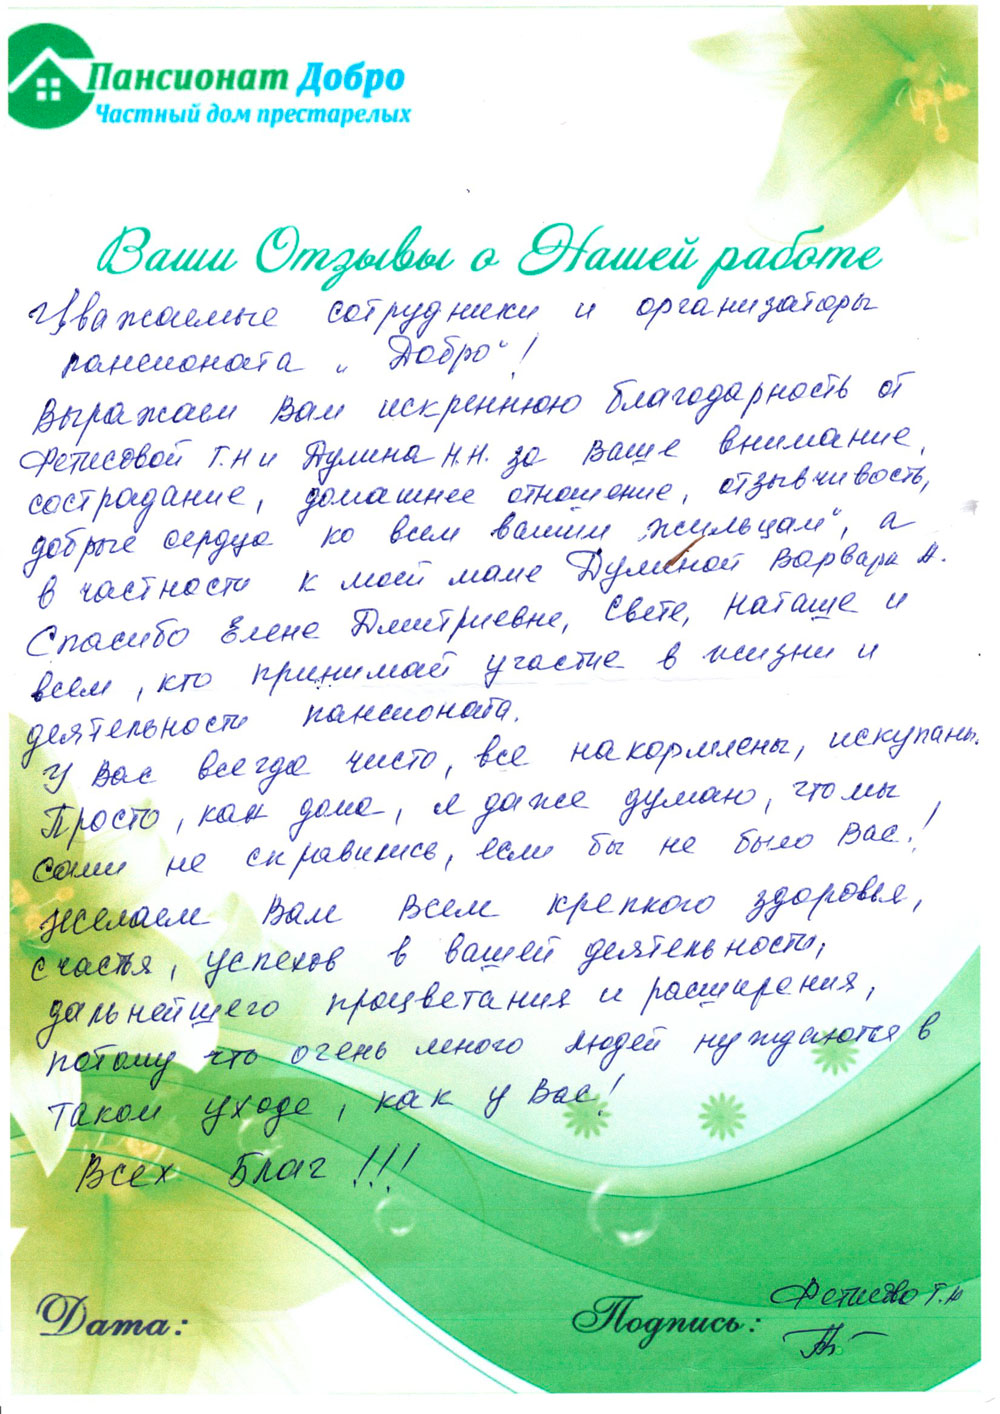 Пансионат Добро
Частный дом престарелых
Ваши Отзывы о Нашей работе
Уважаемые сотрудники и организаторы
пансионата „Добро“!
Выражаем Вам искреннюю благодарность от
Фетисовой Т.Н и Думина Н.Н. за Ваше внимание,
сострадание, домашнее отношение, отзывчивость,
добрые сердца ко всем вашим „жильцам“, а
в частности к моей маме Думиной Варваре А.
Спасибо Елене Дмитриевне, Свете, Наташе и
всем, кто принимает участие в жизни и
деятельности пансионата.
У Вас всегда чисто, все накормлены, искупаны.
Просто, как дома, я даже думаю, что мы
сами не справились, если бы не было Вас!
Желаем Вам Всем крепкого здоровья,
счастья, успехов в вашей деятельности,
дальнейшего процветания и расширения,
потому что очень много людей нуждаются в
таком уходе, как у Вас!
Всех Благ!!!
Дата:
Подпись: Фетисова Т.Н